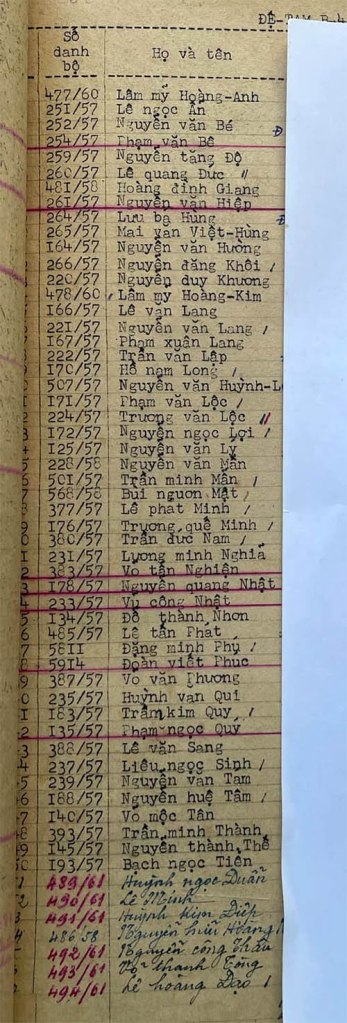 ĐỆ-TAM B.4
Số danh bộ Họ và tên
477/60 Lâm mỹ Hoàng-Anh
251/57 Lê ngọc Ân
252/57 Nguyễn văn Bé
254/57 Phạm văn Bê
259/57 Nguyễn tăng Độ
260/57 Lê quang Đức "
481/58 Hoàng đình Giang
261/57 Nguyễn văn Hiệp
264/57 Lưu bá Hùng
265/57 Mai văn Việt-Hùng
164/57 Nguyễn văn Hường
266/57 Nguyễn đăng Khôi /
220/57 Nguyễn duy Khương
478/60 Lâm mỹ Hoàng-Kim
166/57 Lê văn Lang
221/57 Nguyễn văn Lang /
167/57 Phạm xuân Lang
222/57 Trần văn Lập
170/57 Hồ nam Long /
507/57 Nguyễn văn Huỳnh-L
171/57 Phạm văn Lộc /
224/57 Trương văn Lộc "
172/57 Nguyễn ngọc Lợi /
125/57 Nguyễn văn Lý
228/58 Nguyễn văn Mẫn
501/57 Trần minh Mẫn /
568/58 Bùi nguơn Mật /
377/57 Lê phat Minh /
176/57 Trương quế Minh /
380/57 Trần đức Nam /
231/57 Lương minh Nghĩa
383/57 Võ tấn Nghiện
178/57 Nguyễn quang Nhật
233/57 Vũ công Nhật
134/57 Đỗ thành Nhơn
485/57 Lê tấn Phát
5811 Đặng minh Phụ /
5914 Đoàn viết Phuc
387/57 Võ văn Phương
235/57 Huỳnh văn Qui
183/57 Trầm kim Quy /
135/57 Phạm ngọc Quý
388/57 Lê văn Sang
237/57 Liêu ngọc Sinh /
239/57 Nguyễn văn Tam
188/57 Nguyễn huệ Tâm /
140/57 Võ mộc Tân
393/57 Trần minh Thành
145/57 Nguyễn thành Thế
193/57 Bạch ngọc Tiên
489/61 Huỳnh ngọc Duẩn
490/61 Lê Minh
491/61 Huỳnh kim Diệp
486/58 Nguyễn hữu Hoàng
492/61 Nguyễn công
493/61 Võ thanh Tòng
494/61 Lê hoàng Đạo /